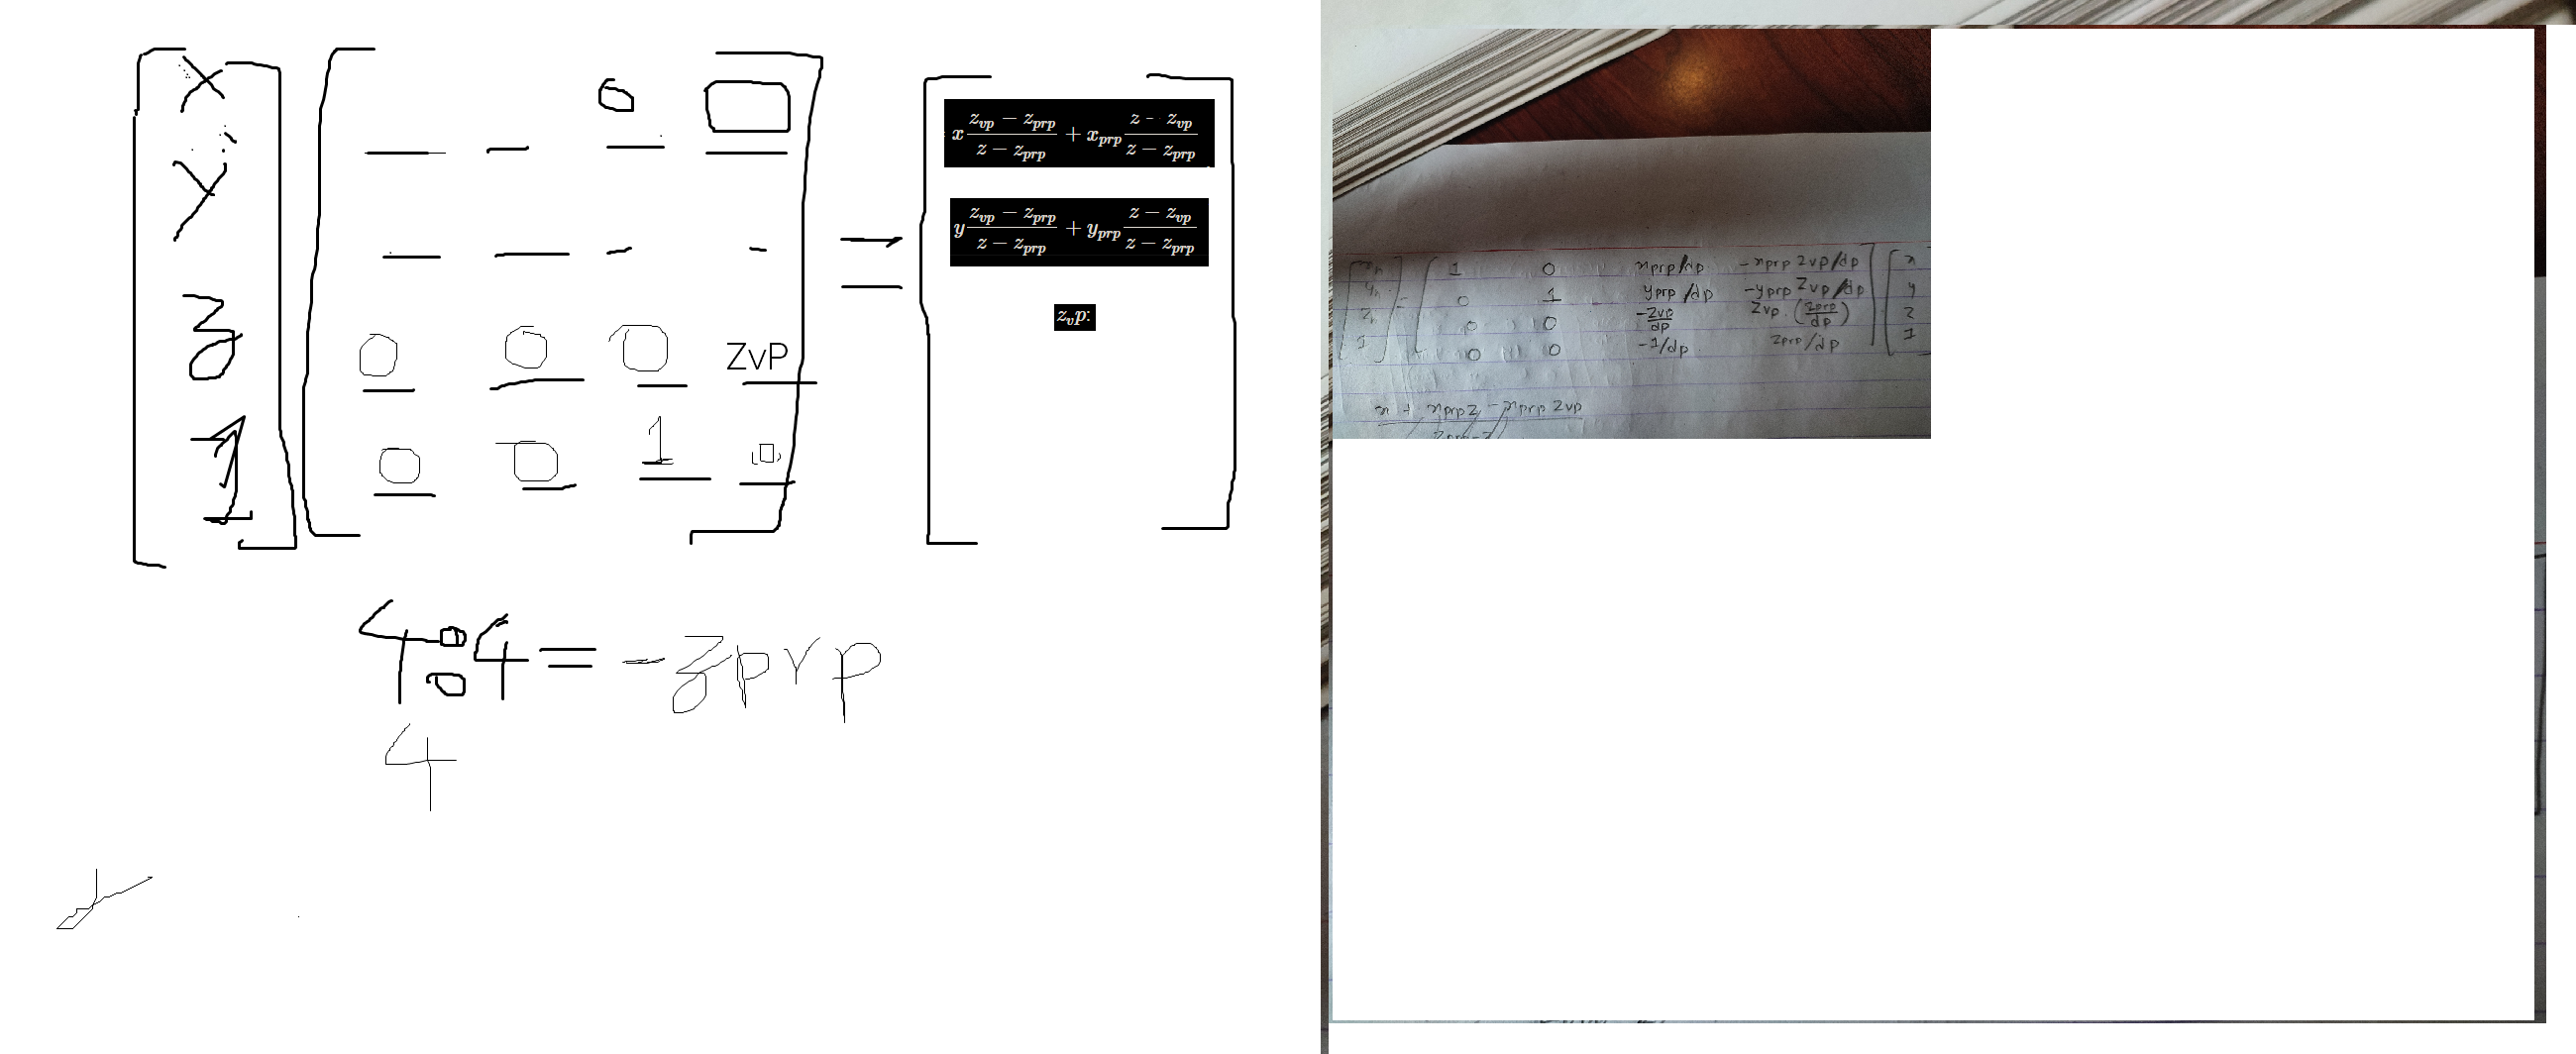 x
y
z
1
0 0
0 0 0 ZvP
0 0 1 0
=
x \frac{z_{vp} - z_{prp}}{z - z_{prp}} + x_{prp} \frac{z - z_{vp}}{z - z_{prp}}
y \frac{z_{vp} - z_{prp}}{z - z_{prp}} + y_{prp} \frac{z - z_{vp}}{z - z_{prp}}
z_vp:
4:4 = -zprp
4
xh 1 0 xprp/dp -xprp zvp/dp x
yh = 0 1 yprp/dp -yprp zvp/dp y
zh 0 0 -zvp/dp zvp.(zprp/dp) z
1 0 0 -1/dp zprp/dp 1
x + xprp z - xprp zvp